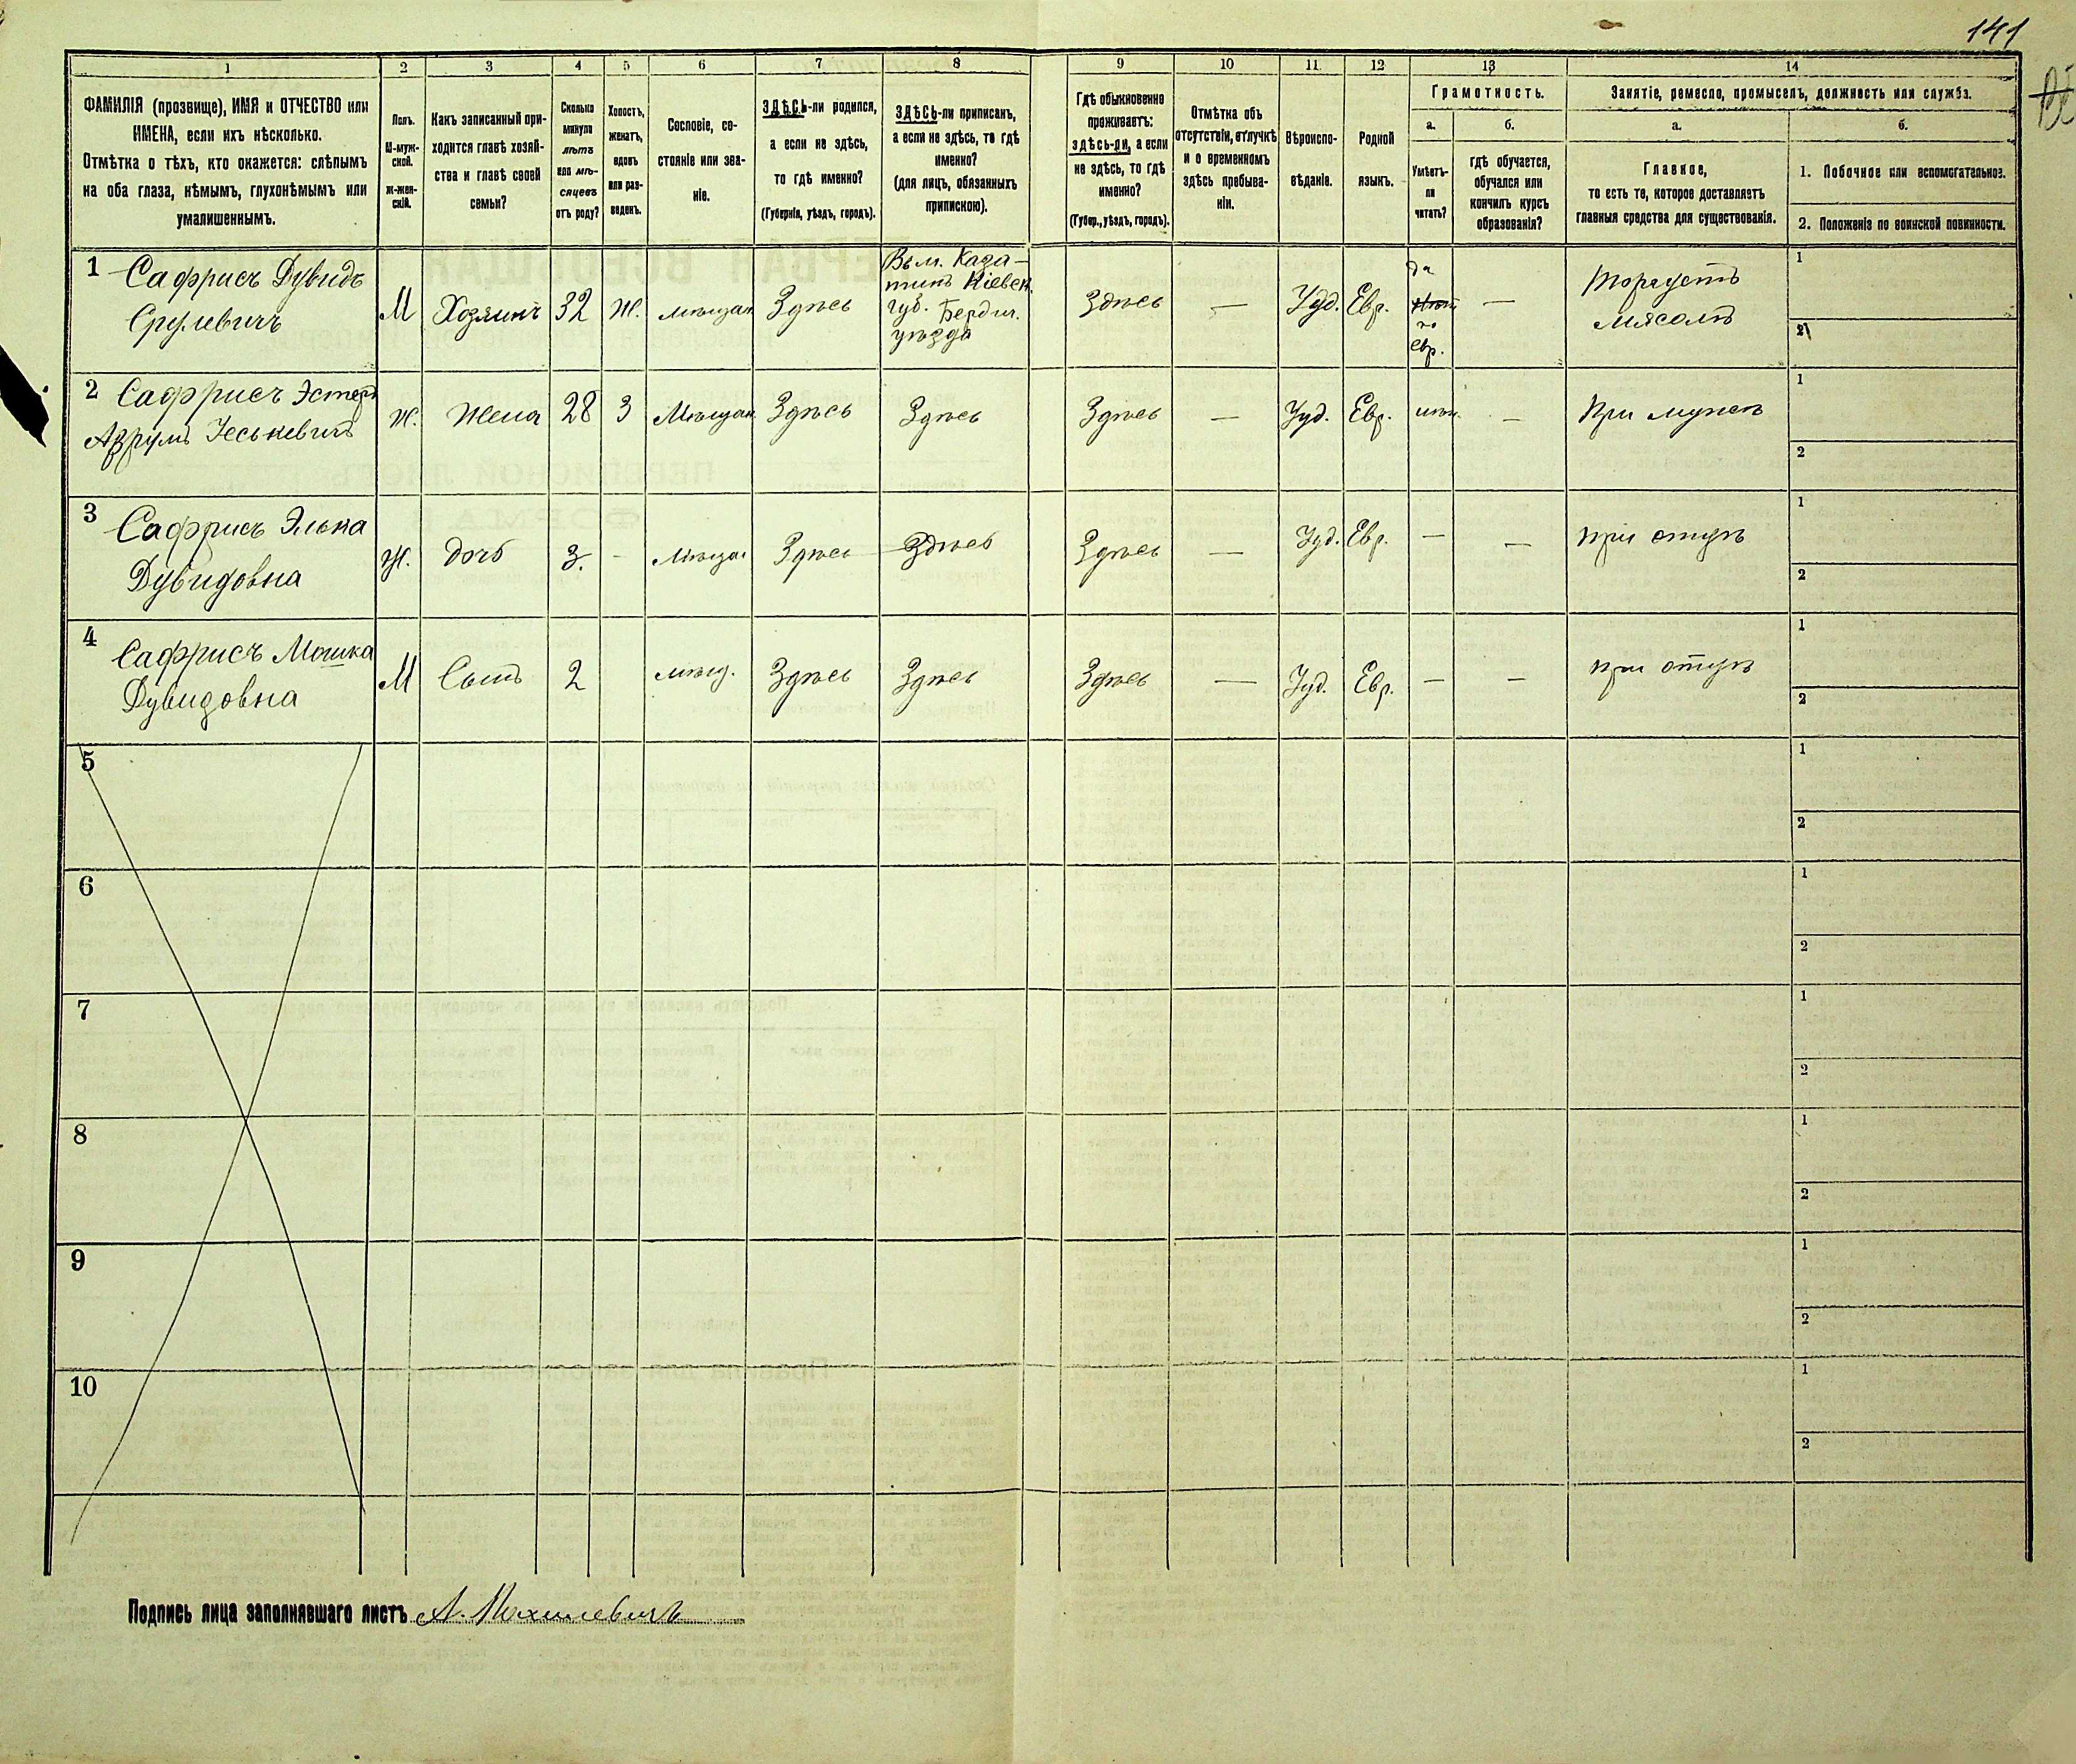 141
1
2
3
4
5
6
7
8
9
10
11
12
13
14
ФАМИЛІЯ (прозвище), ИМЯ и ОТЧЕСТВО или
ИМЕНА, если ихъ нѣсколько.
Отмѣтка о тѣхъ, кто окажется: слѣпымъ
на оба глаза, нѣмымъ, глухонѣмымъ или
умалишеннымъ.
Полъ.
М-муж-
ской.
Ж-жен-
скій.
Какъ записанный при-
ходится главѣ хозяй-
ства и главѣ своей
семьи?
Сколько
минуло
лѣтъ
или мѣ-
сяцевъ
отъ роду?
Холостъ,
женатъ,
вдовъ
или раз-
веденъ.
Сословіе, со-
стояніе или зва-
ніе.
ЗДѢСЬ-ли родился,
а если не здѣсь,
то гдѣ именно?
(Губернія, уѣздъ, городъ).
ЗДѢСЬ-ли приписанъ,
а если не здѣсь, то гдѣ
именно?
(для лицъ, обязанныхъ
припискою).
Гдѣ обыкновенно
проживаетъ:
здѣсь-ли, а если
не здѣсь, то гдѣ
именно?
(Губер., уѣздъ, городъ).
Отмѣтка объ
отсутствіи, отлучкѣ
и о временномъ
здѣсь пребыва-
ніи.
Вѣроиспо-
вѣданіе.
Родной
языкъ.
Грамотность.
а.
б.
Умѣетъ-
ли
читать?
гдѣ обучается,
обучался или
кончилъ курсъ
образованія?
Занятіе, ремесло, промыселъ, должность или служба.
а.
б.
Главное,
то есть то, которое доставляетъ
главныя средства для существованія.
1. Побочное или вспомогательное.
2. Положеніе по воинской повинности.
1 Сафрисъ Дувидъ
Срулевичъ
М
Хозяинъ
32
Ж.
мѣщан
Здѣсь
Въ м. Каза-
тинъ Кіевск.
губ. Бердич.
уѣзда
Здѣсь
—
Іуд.
Евр.
да
по
Евр.
—
Торгуетъ
мясомъ
1
2
2 Сафрисъ Эстеръ
Ж.
Жена
28
З
Мѣщан
Здѣсь
Здѣсь
Здѣсь
—
Іуд.
Евр.
—
При мужѣ
1
2
3 Сафрисъ Элька
Дувидовна
Ж.
дочь
3.
-
Мѣщан
Здѣсь
Здѣсь
Здѣсь
—
Іуд.
Евр.
—
—
при отцѣ
1
2
4 Сафрисъ Мошка
Дувидовна
М
Сынъ
2
мѣщ.
Здѣсь
Здѣсь
Здѣсь
—
Іуд.
Евр.
—
—
при отцѣ
1
2
5
1
2
6
1
2
7
1
2
8
1
2
9
1
2
10
1
2
Подпись лица заполнявшаго листъ